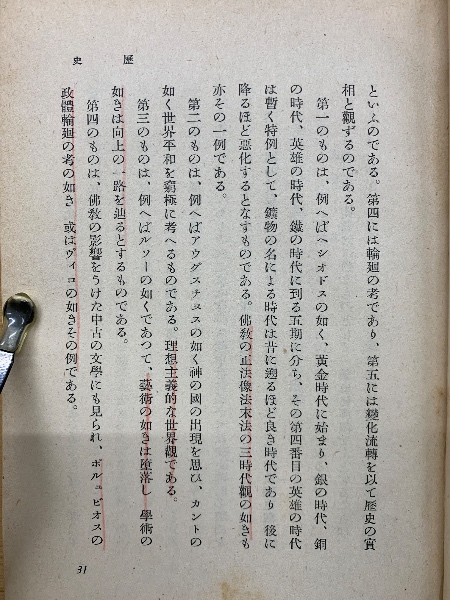 歴史
といふのである。第四には輪廻の考であり、第五には變化流轉を以て歴史の實
相と觀ずるのである。
第一のものは、例へばヘシオドスの如く、黄金時代に始まり、銀の時代、銅
の時代、英雄の時代、鐵の時代に到る五期に分ち、その第四番目の英雄の時代
は暫く特例として、鑛物の名による時代は昔に遡るほど良き時代であり　後に
降るほど惡化するとなすものである。佛教の正法像法末法の三時代觀の如きも
亦その一例である。
第二のものは、例へばアウグスチヌスの如く神の國の出現を思ひ、カントの
如く世界平和を窮極に考へるものである。理想主義的な世界觀である。
第三のものは、例へばルソーの如くであつて、藝術の如きは墮落し　學術の
如きは向上の一路を辿るとするものである。
第四のものは、佛教の影響をうけた中古の文學にも見られ、ポルュビオスの
政體輪廻の考の如き　或はヴィコの如きその例である。
31